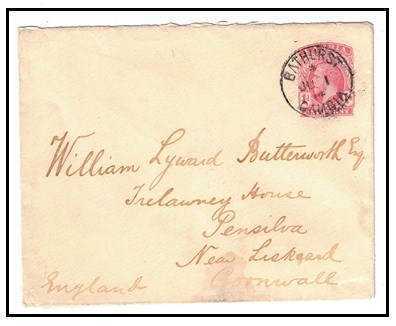 BATHURST
JU 1
GAMBIA
William Lyward Butterworth Esq
Trelawney House
Pensilva
Near Liskeard
Cornwall
England